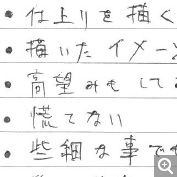 ・仕上りを描く
・描いた イメー
・高望みもして
・慌てない
・些細な事で